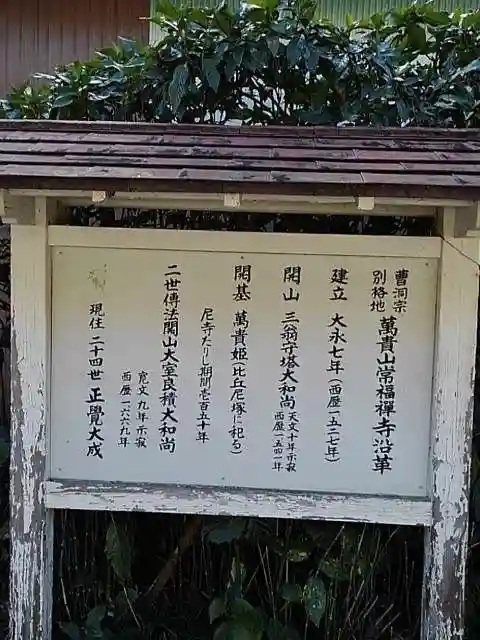 曹洞宗
別格地
萬貴山常福禅寺沿革
建立 大永七年(西暦一五二七年)
開山 三翁守塔大和尚
天文十年示寂
西暦一五四一年
開基 萬貴姫(比丘尼塚に祀る)
尼寺たりし期間壱百五十年
二世傳法開山大室良積大和尚
寛文九年示寂
西暦一六六九年
現住 二十四世 正覺大成